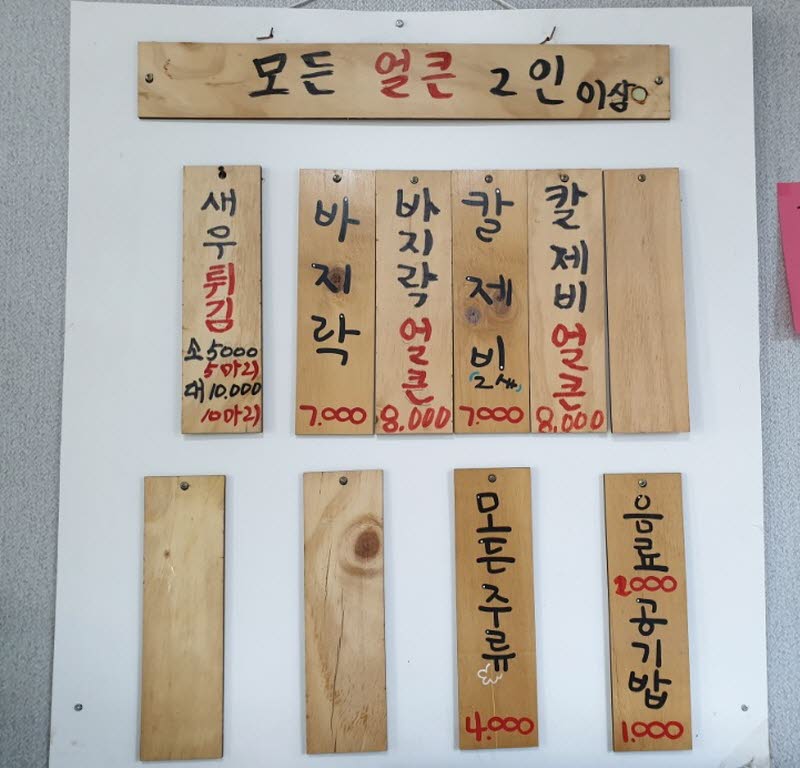 모든 얼큰 2인 이상
새우튀김
소 5000
5마리
대 10.000
10마리
바지락
7.000
바지락 얼큰
8.000
칼제비
7.000
칼제비 얼큰
8.000
모든주류
4.000
음료
2000
공기밥
1.000